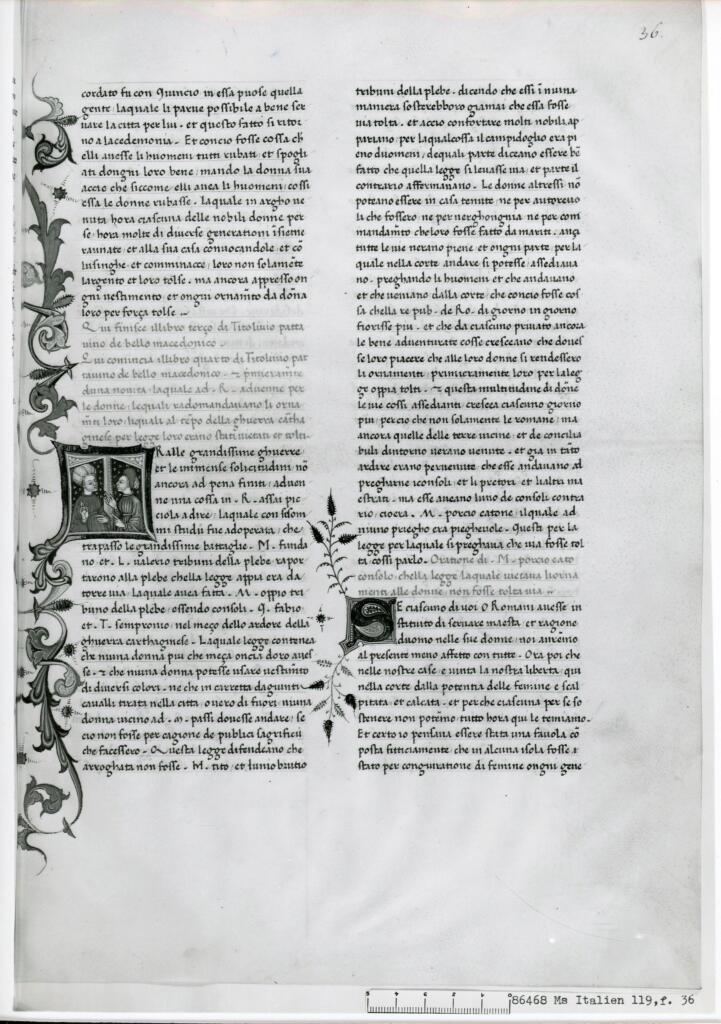 36.
cordato fu con Quincio in essa puose quella
gente laquale li parue possibile a bene ser
uare la citta per lui. et questo fatto si ritor
no a lacedemonia. Et concio fosse cossa ch
elli auesse li huomeni tutti rubati et spogli
ati dongni loro bene, mando la donna sua
accio che siccome elli auea li huomeni, cossi
essa le donne rubasse. laquale in argho ue
nuta hora ciascuna delle nobili donne per
se, hora molte di diuerse generationi ī sieme
raunate, et alla sua casa conuocandole, et cō
lusinghe et comminacce, loro non solamēte
largento et loro tolse. ma ancora appresso on
gni uestimento et ongni ornamēto da dōna
loro per força tolse ..
Qui finisce illibro terço di Titoliuio patta
uino de bello macedonico.
Qui comincia illibro quarto di Titoliuio pat
tauino de bello macedonico. et primieramēte
duna nouita laquale ad. R. aduenne per
le donne, lequali radomandauano li orna
mēti loro, liquali al tēpo della ghuerra cātha
ginese per legge loro erano stati uietati et tolti.
TRalle grandissime ghuerre
et le inmense solicitudini nō
ancora ad pena finiti, aduen
ne una cossa in. R. assai pic
ciola a dire, laquale con sōm
mi studii fue adoperata, che
trapasso le grandissime battaglie. M. funda
no et. L. ualerio tribuni della plebe rapor
tarono alla plebe chella legge appia era da
torre uia, laquale auea fatta. M. oppio tri
buno della plebe, essendo consoli. Q. fabio
et. T. sempronio, nel meço dello ardore della
ghuerra carthaginese. Laquale legge contenea
che niuna donna piu che meça oncia doro aues
se. et che niuna donna potesse usare uestimēto
di diuersi colori. ne che in carretta dagiunti
caualli tirata nella citta, o uero di fuori, niuna
donna uicino ad. M. passi douesse andare, se
cio non fosse per cagione de publici sagrificii
che facessero. Questa legge difendeano che
arroghata non fosse. M. tito, et Iunio brutio
tribuni della plebe. dicendo che essi ī niuna
maniera sosterebboro giamai che essa fosse
uia tolta. et accio confortare molti nobili ap
pariano, per laqualcossa il campidoglio era pi
eno duomeni, dequali parte diceano essere bē
fatto che quella legge si leuasse uia, et parte il
contrario affermauano. Le donne altressi nō
poteano essere in casa tenute, ne per autoreuo
li che fossero, ne per uerghongnia, ne per com
mandamēto che loro fosse fatto da mariti. ançi
tutte le uie nerano piene, et ongni parte per la
quale nella corte andare si potesse, assediaua
no. preghando li huomeni et che andauano
et che ueniano dalla corte, che concio fosse cos
sa che lla re pub. de Ro. di giorno in giorno
fiorisse piu. et che da ciascuno priuato ancora
le bene aduenturate cosse cresceano, che doues
se loro piacere che alle loro donne si rendessero
li ornamenti, primieramente loro per la leg
ge oppia tolti. et questa multitudine di dōne
le uie cossi assedianti, crescea ciascuno giorno
piu, percio che non solamente le romane, ma
ancora quelle delle terre uicine et de concilia
buli dintorno uerano uenute. et gia in tāto
ardire erano peruenute, che esse andauano ad
pregharne i consoli et li pretori et li altri ma
estrati. ma esse aueano luno de consoli contra
rio, cio era. M. porcio catone, il quale ad
niuno priegho era pieghieuole. Questi per la
legge per laquale si preghaua che uia fosse tol
ta, cossi parlo. Oratione di. M. porcio cato
consolo, chella legge laquale uietaua li orna
menti alle donne, non fosse tolta uia ..
SE ciascuno di uoi O Romani auesse in
stituto di seruare maesta et ragione
duomo nelle sue donne, noi auremo
al presente meno affetto con tutte. Ora poi che
nelle nostre case e uinta la nostra liberta, qui
nella corte dalla potentia delle femine e scal
pitata et calcata. et perche ciascuna per se so
stenere non potēmo, tutto hora qui le temiamo.
Et certo io pensaua essere stata una fauola cō
posta fitticiamente che in alcuna isola fosse
stato per congiuratione di femine ongni gene
86468 Ms Italien 119, f. 36